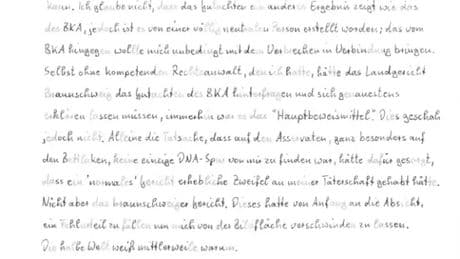 kann. Ich glaube nicht, dass das Gutachten ein anderes Ergebnis zeigt wie das
des BKA, jedoch ist es von einer völlig neutralen Person erstellt worden; das vom
BKA hingegen wollte mich unbedingt mit dem Verbrechen in Verbindung bringen.
Selbst ohne kompetenden Rechtsanwalt, den ich hatte, hätte das Landgericht
Braunschweig das Gutachten des BKA hinterfragen und sich genauestens
erklären lassen müssen, immerhin war es das "Hauptbeweismittel". Dies geschah
jedoch nicht. Alleine die Tatsache, dass auf den Asservaten, ganz besonders auf
den Bettlaken, keine einzige DNA-Spur von mir zu finden war, hätte dafür gesorgt,
dass ein 'normales' Gericht erhebliche Zweifel an meiner Täterschaft gehabt hätte.
Nicht aber das braunschweiger Gericht. Dieses hatte von Anfang an die Absicht,
ein Fehlurteil zu fällen um mich von der Bildfläche verschwinden zu lassen.
Die halbe Welt weiß mittlerweile warum.